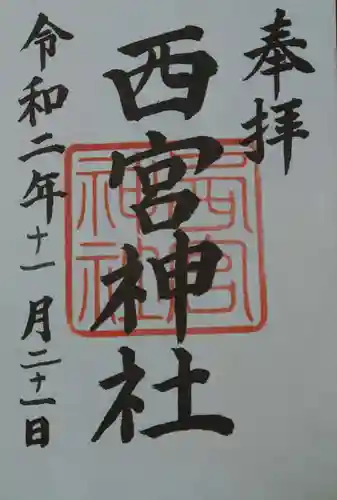 奉拝
西宮神社
令和二年十一月二十一日